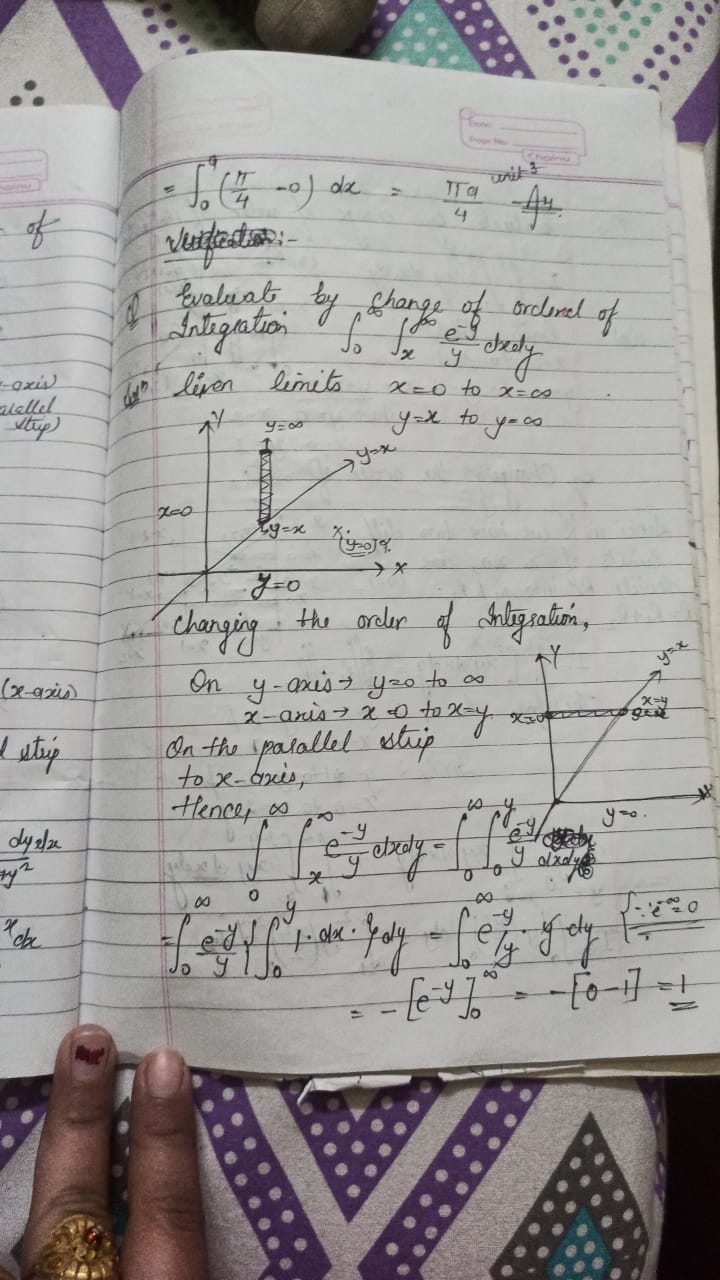 of
-axis)
arallel
strip)
(x-axis)
l strip
dy dx
+y²
dx
Date:
Page No.
= ∫₀^a (π/4 - 0) dx = πa/4 unit³
Verification:-
Q Evaluate by change of ordered of
Integration ∫₀^∞ ∫ₓ^∞ e^-y/y dxdy
Solⁿ Given limits x=0 to x=∞
y=x to y=∞
Y
y=∞
y=x
x=0
y=x
(y=0)
X
y=0
Changing the order of Integration,
On y-axis → y=0 to ∞
x-axis → x=0 to x=y
On the parallel strip
to x-axis,
Y
y=x
x=0
x=y
X
y=0.
Hence, ∫₀^∞ ∫ₓ^∞ e^-y/y dxdy = ∫₀^∞ ∫₀^y e^-y/y dxdy
= ∫₀^∞ e^-y/y {∫₀^y 1·dx·} dy = ∫₀^∞ e^-y/y · y dy {∵ e^-∞=0
= -[e^-y]₀^∞ = -[0-1] = 1